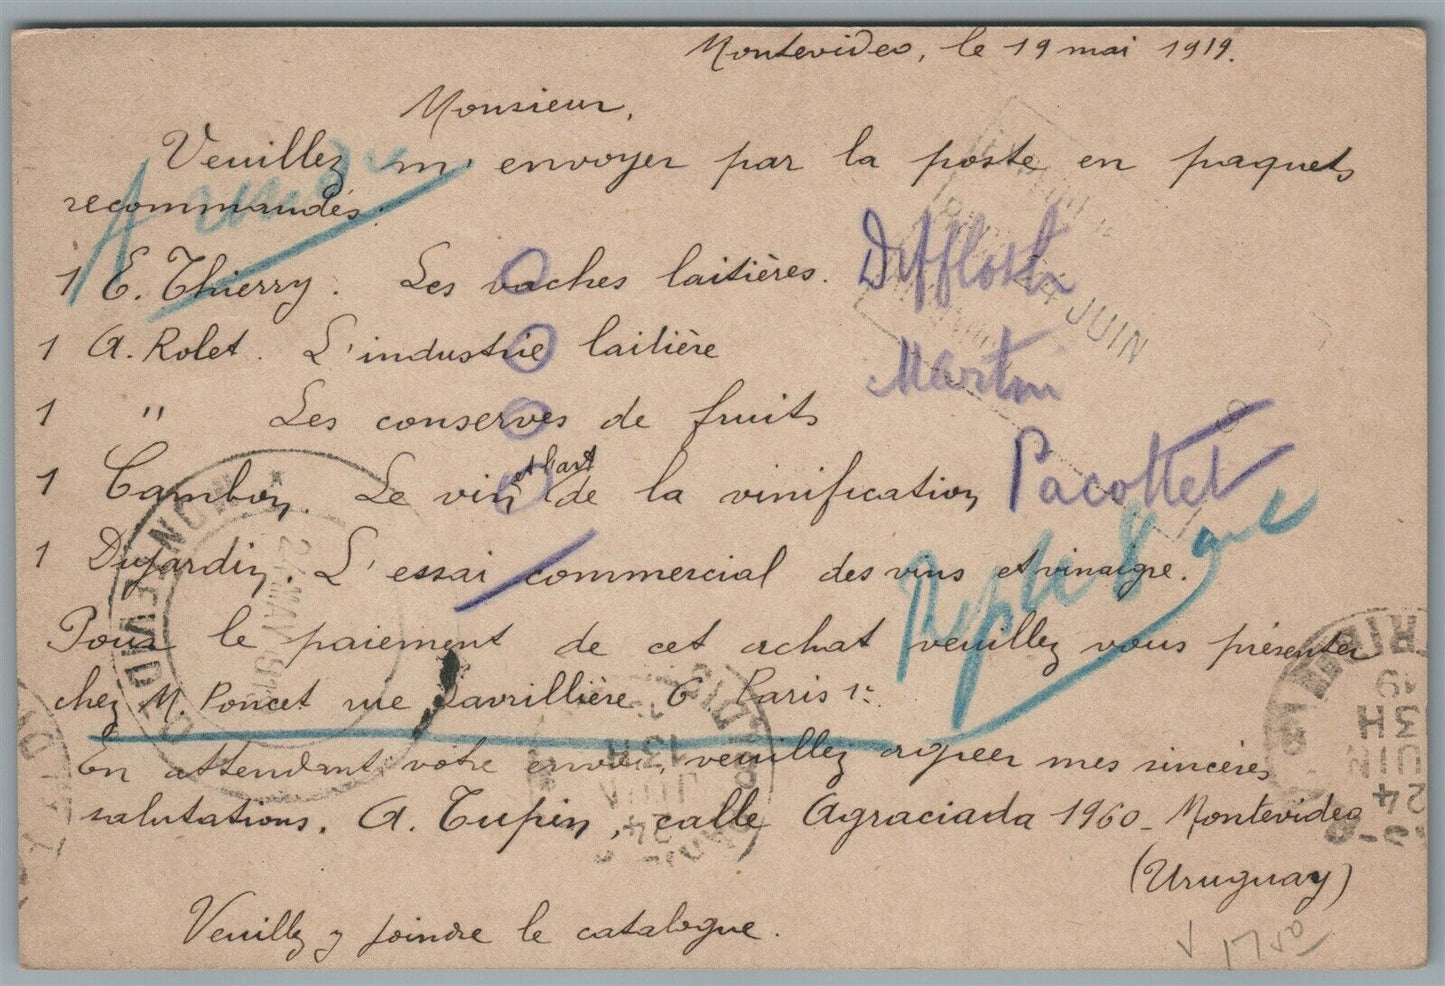 Montevideo, le 19 mai 1919.
Monsieur,
Veuillez m'envoyer par la poste en paquets
recommandés.
1 E. Thierry. Les vaches laitières. Diffloth
1 A. Rolet. L'industrie laitière Martin
1 " Les conserves de fruits
1 Cambon. Le vin et l'art de la vinification Pacottet
1 Dujardin. L'essai commercial des vins et vinaigre.
Pour le paiement de cet achat veuillez vous présenter
chez M. Poncet rue Lavrillière 6 Paris 1er.
En attendant votre envoi, veuillez agréer mes sincères
salutations. A. Tupin, calle Agraciada 1960 - Montevideo
(Uruguay)
Veuillez y joindre le catalogue.
JUIN
MONTEVIDEO
13H
JUIN
24
19
13H
JUIN
24